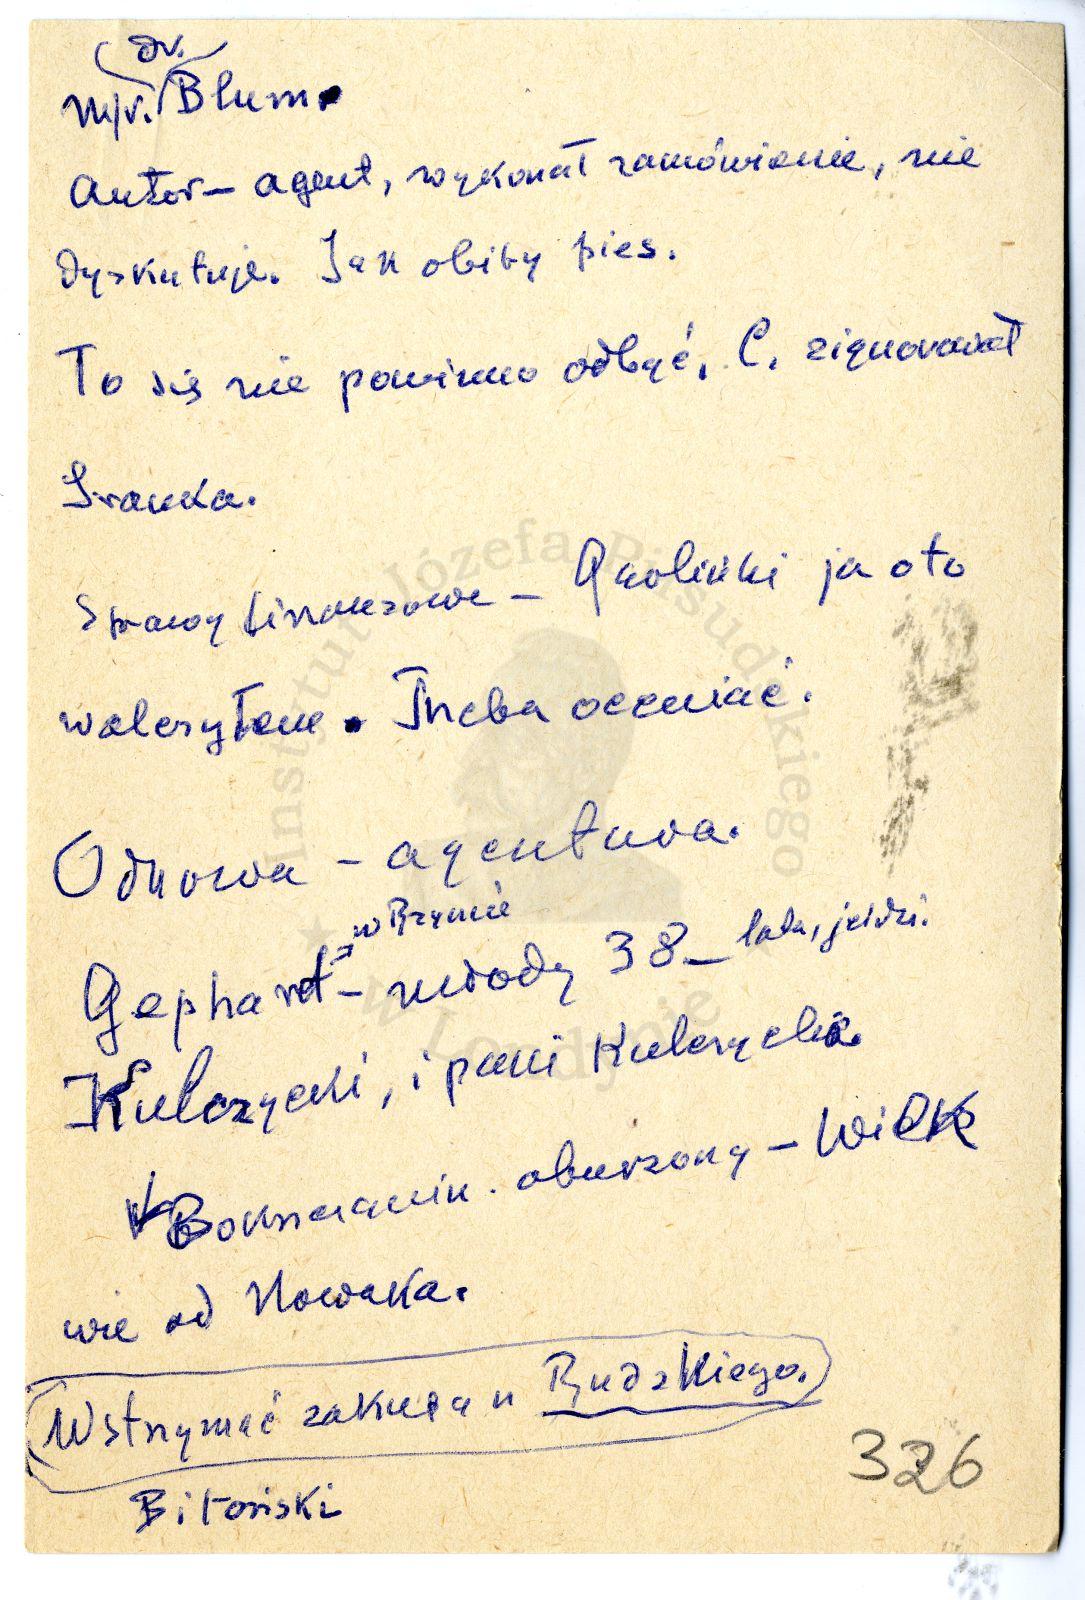 dr.
mjr. Blum.
Autor – agent, wykonał zamówienie, nie
dyskutuje. Jak obity pies.
To się nie powinno odbyć. C. zignorował
Franka.
Sprawy finansowe – ja oto
walczyłem. Trzeba oceniać.
Odnowa – agentura.
w Rzymie
Gephardt – młody 38 – lata, jeździ.
Kulczycki, i pani Kulczycka.
Bokszczanin. oburzony – Wilk
wie od Nowaka.
Wstrzymać zakupa u Rudzkiego.
Bitoński
326
Instytut Józefa Piłsudskiego
w Londynie